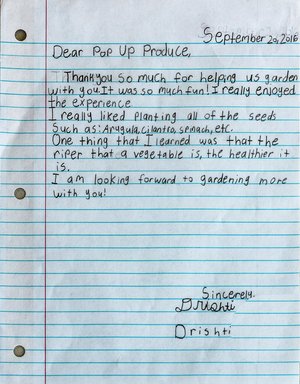 September 20, 2016
Dear Pop Up Produce,
Thank you so much for helping us garden
with you. It was so much fun! I really enjoyed
the experience
I really liked planting all of the seeds
Such as: Arugula, Cilantro, spinach, etc.
One thing that I learned was that the
riper that a vegetable is, the healthier it
is.
I am looking forward to gardening more
with you!
Sincerely.
Drishti
Drishti